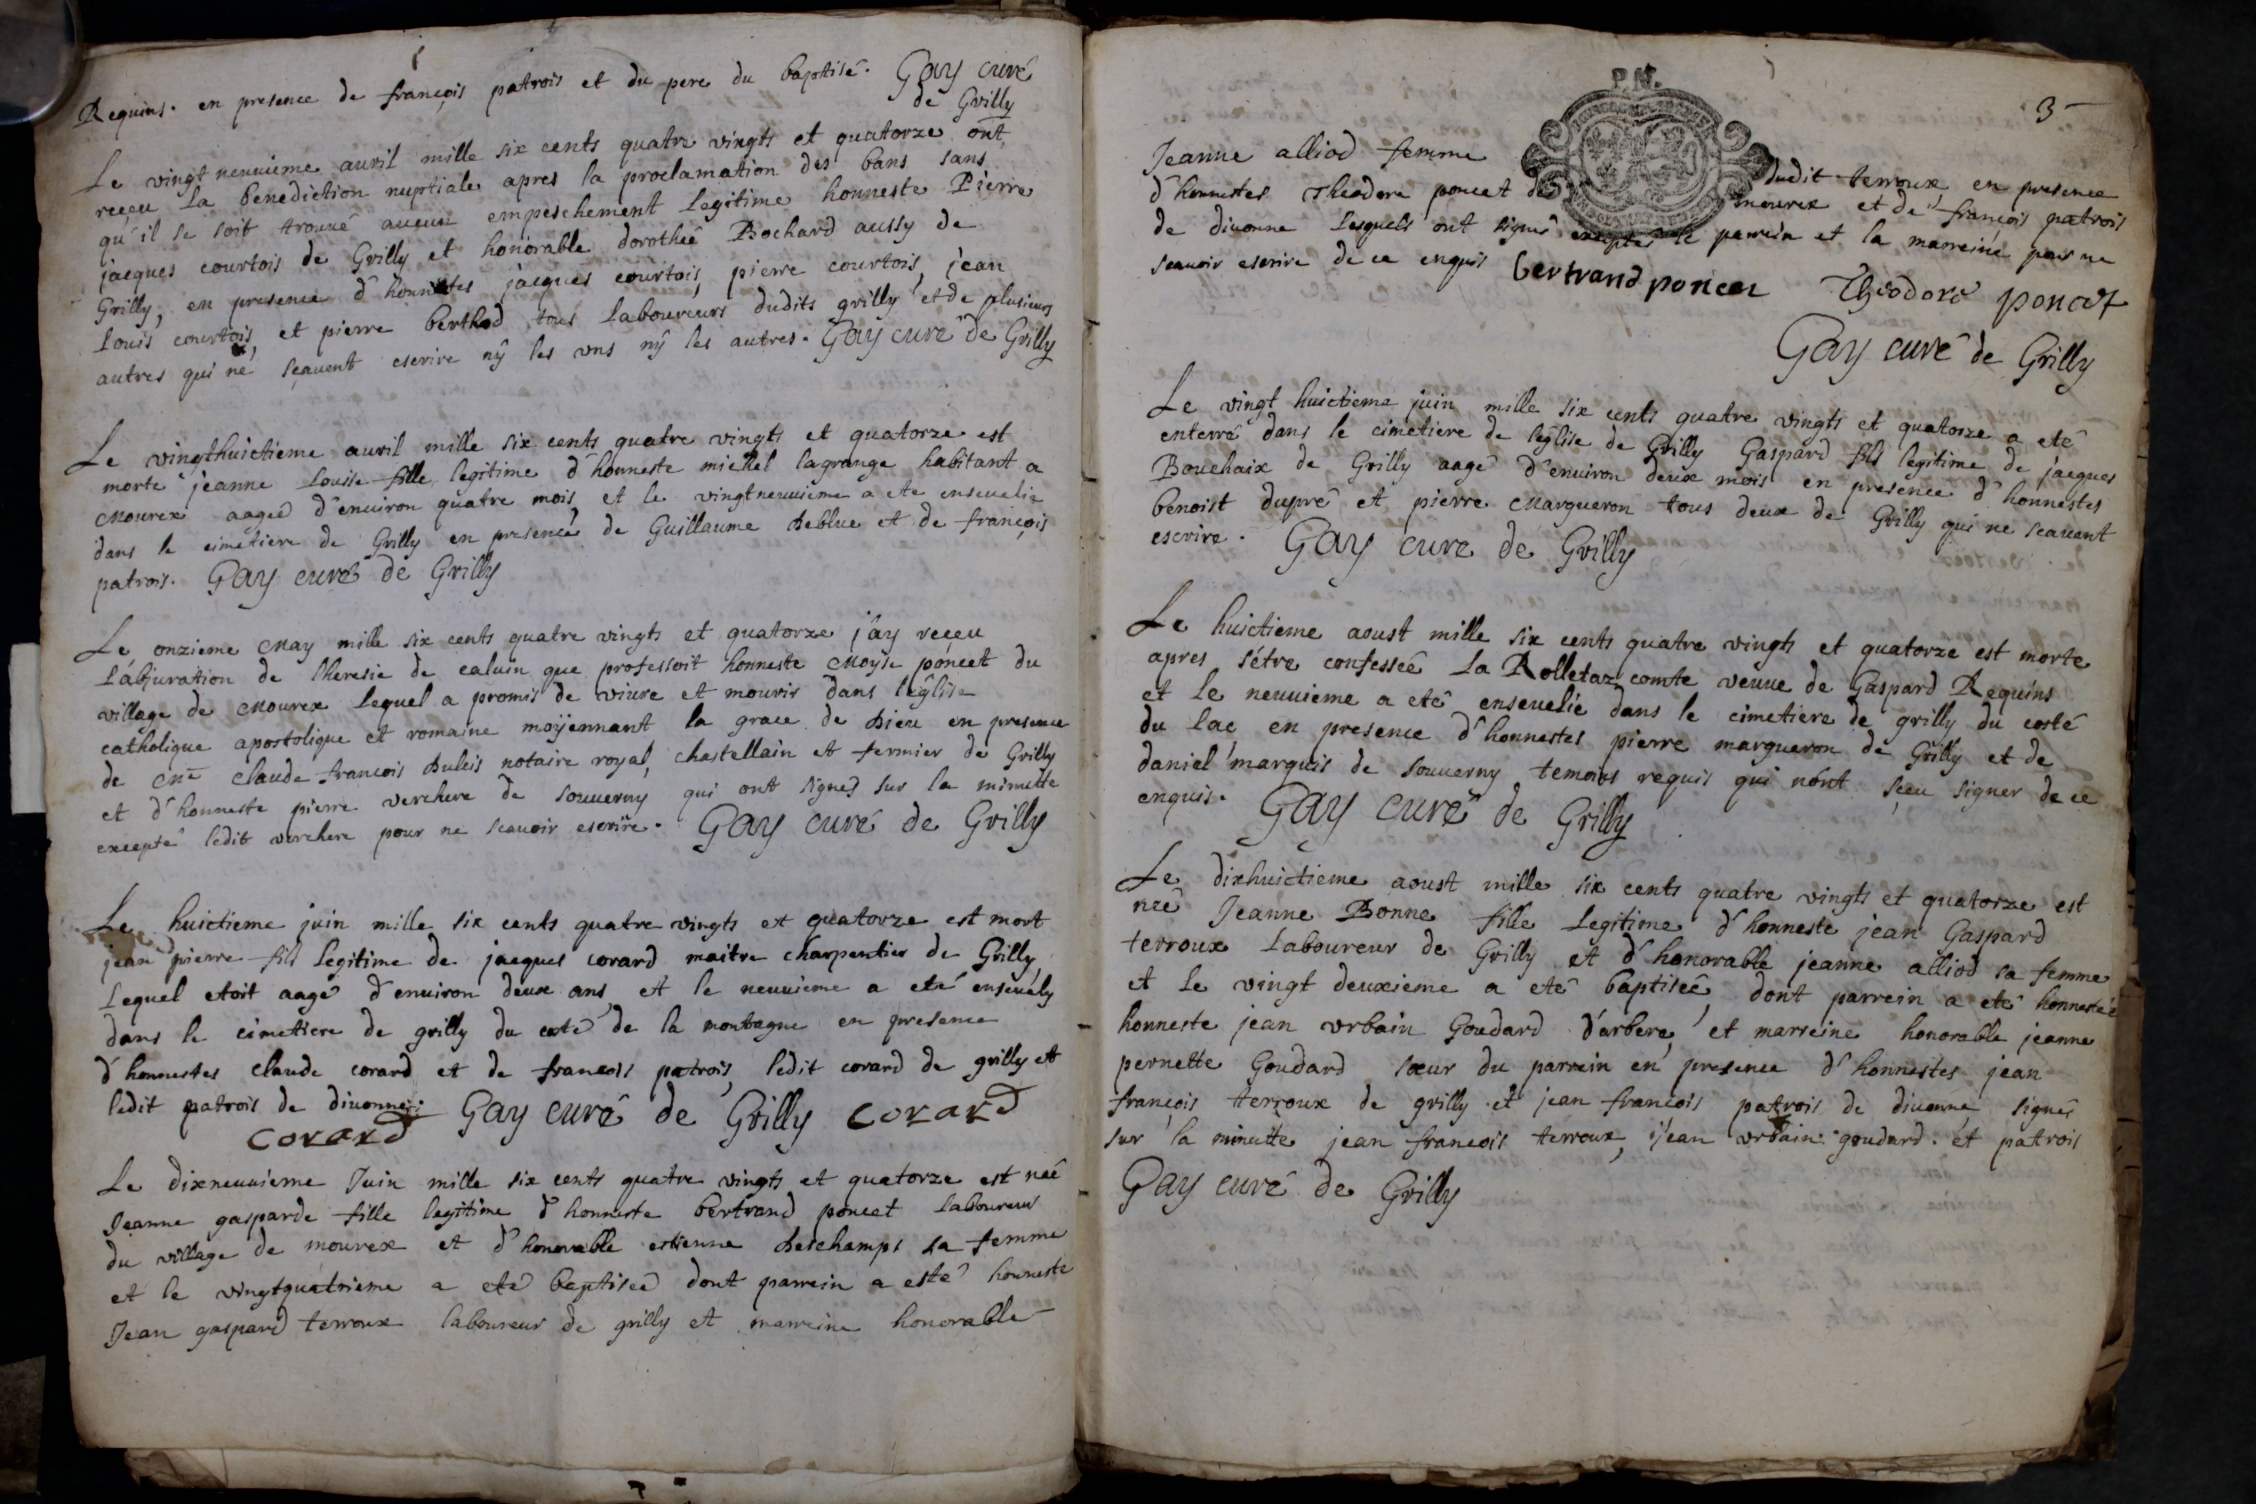 Requins. en presence de françois patrois et du pere du baptisé. Gay curé
de Grilly
Le vingt neuuieme auril mille six cents quatre vingts et quatorze ont
reçeu la benediction nuptiale apres la proclamation des bans sans
qu'il se soit trouué aucun empeschement legitime honneste Pierre
jacques courtois de Grilly et honorable dorotheé Bochard aussy de
Grilly, en presence d'honnestes jacques courtois, pierre courtois, jean
louis courtois, et pierre berthod tous laboureurs dudits grilly et de plusieurs
autres qui ne sçauent escrire nÿ les vns nÿ les autres. Gay curé de Grilly
Le vingthuictieme auril mille six cents quatre vingts et quatorze est
morte jeanne louise fille legitime d'honneste michel lagrange habitant a
Mourex aageé d'enuiron quatre mois, et le vingtneuuieme a eté enseuelie
dans le cimetiere de Grilly en presence de Guillaume deblue et de françois
patrois. Gay curé de Grilly
Le onzieme May mille six cents quatre vingts et quatorze j'ay reçeu
l'abjuration de l'heresie de caluin que professoit honneste Moyse poncet du
village de Mourex lequel a promis de viure et mourir dans l'eglise
catholique apostolique et romaine moÿennant la grace de Dieu en presence
de Mre claude françois duleis notaire royal, chastellain et fermier de Grilly
et d'honneste pierre verchere de souuerny qui ont signés sur la minutte
excepté ledit verchere pour ne scauoir escrire. Gay curé de Grilly
Le huictieme juin mille six cents quatre vingts et quatorze est mort
jean pierre fils legitime de jacques corard maitre charpentier de Grilly
lequel etoit aagé d'enuiron deux ans, et le neuuieme a eté enseuely
dans le cimetiere de grilly du coté de la montagne en presence
d'honnestes claude corard et de francois patrois, ledit corard de grilly et
ledit patrois de diuonne. Gay curé de Grilly corard
corard
Le dixneuuieme Juin mille six cents quatre vingts et quatorze est neé
Jeanne gasparde fille legitime d'honneste bertrand poncet laboureur
du village de mourex et d'honorable estienne deschamps sa femme
et le vingtquatrieme a eté baptiseé dont parrein a esté honneste
Jean gaspard terroux laboureur de grilly et marreine honorable
P.N.
3
Jeanne alliod femme dudit terroux en presence
d'honnestes Theodore poncet de mourex et de françois patrois
de diuonne lesquels ont signé exceptés le parrein et la marreine pour ne
scauoir escrire de ce enquis bertrand poncet Theodore poncet
Gay curé de Grilly
Le vingt huictieme juin mille six cents quatre vingts et quatorze a eté
enterré dans le cimetiere de l'eglise de Grilly Gaspard fils legitime de jacques
Bouchaix de Grilly aagé d'enuiron deux mois en presence d'honnestes
benoist dupré et pierre Margueron tous deux de Grilly qui ne scauent
escrire. Gay curé de Grilly
Le huictieme aoust mille six cents quatre vingts et quatorze est morte
apres s'étre confesseé la Rolletaz comte veuue de Gaspard Requins
et le neuuieme a eté enseuelie dans le cimetiere de grilly du costé
du lac en presence d'honnestes pierre margueron de Grilly et de
daniel marquis de souuerny temoins requis qui n'ont sçeu signer de ce
enquis. Gay curé de Grilly
Le dixhuictieme aoust mille six cents quatre vingts et quatorze est
neé Jeanne Bonne fille legitime d'honneste jean Gaspard
terroux laboureur de Grilly et d'honorable jeanne alliod sa femme
et le vingt deuxieme a eté baptiseé, dont parrein a eté honneste
honneste jean vrbain Goudard d'arbere, et marreine honorable jeanne
pernette Goudard sœur du parrein en presence d'honnestes jean
françois terroux de grilly et jean francois patrois de diuonne signés
sur la minutte jean francois terroux, jean vrbain goudard. et patrois
Gay curé de Grilly